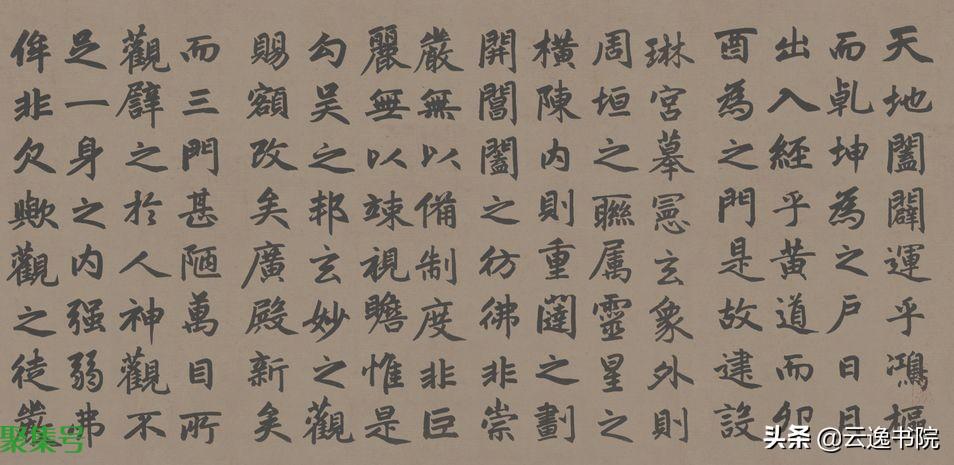 天地闔闢運乎鴻樞
而乹坤為之戶日月
出入經乎黃道而卯
酉為之門是故建設
琳宮摹憲玄象外則
周垣之聯属靈星之
橫陳内則重闥之劃
開閶闔之彷彿非崇
嚴無以備制度非巨
麗無以竦視瞻惟是
勾吴之邦玄妙之觀
賜額改矣廣殿新矣
而三門甚陋萬目所
觀譬之於人神觀不
足一身之内强弱弗
侔非欠歟觀之徒嚴
聚集号
头条 @云逸书院